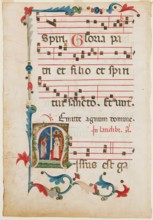 spiri. Gloria pa
tri et filio et spiri
tui sancto. et
Emitte agnum domine.
issus est ga